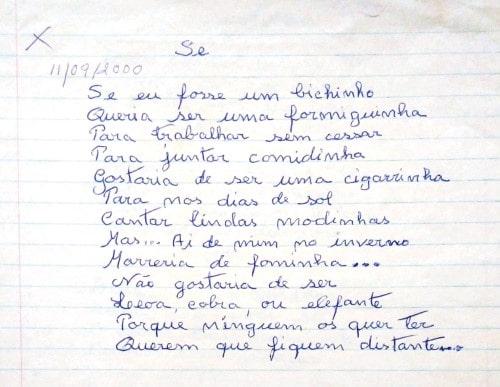 X
Se
11/09/2000
Se eu fosse um bichinho
Queria ser uma formiguinha
Para trabalhar sem cessar
Para juntar comidinha
Gostaria de ser uma cigarrinha
Para nos dias de sol
Cantar lindas modinhas
Mas... Ai de mim no inverno
Morreria de fominha...
Não gostaria de ser
Leoa, cobra, ou elefante
Porque ninguem os quer ter
Querem que fiquem distante...